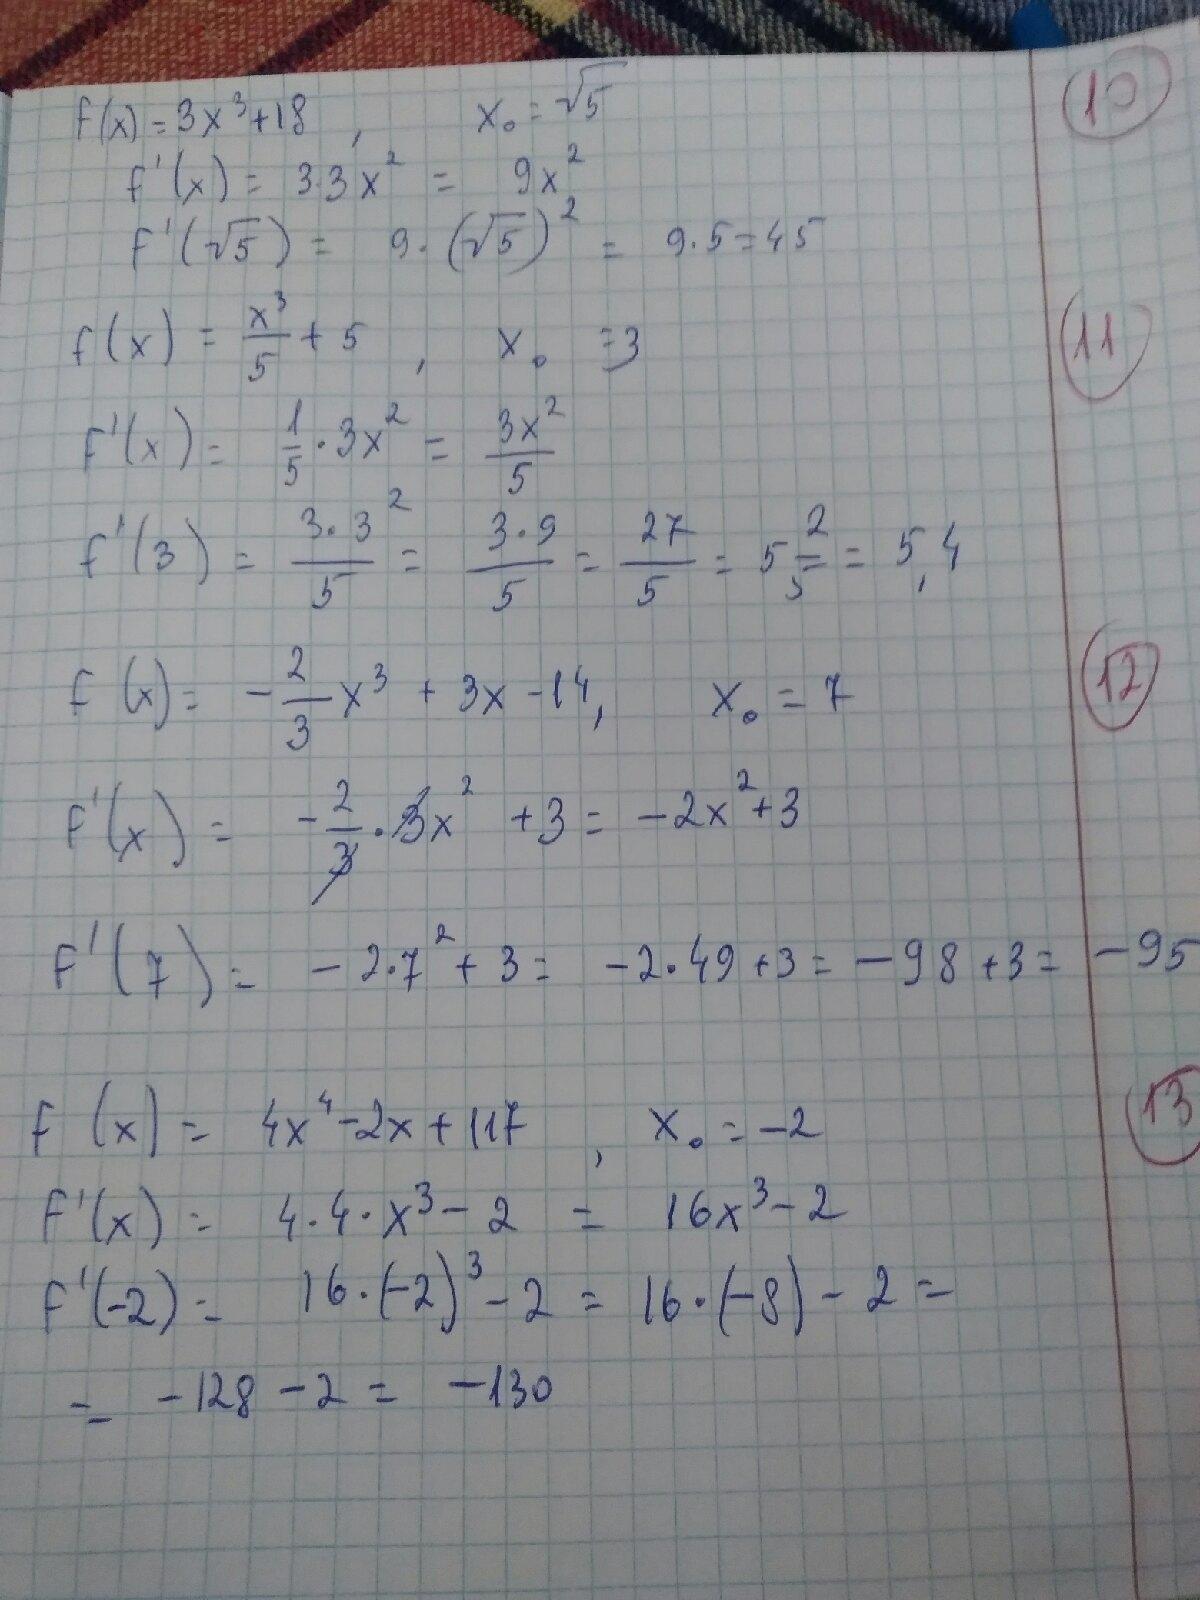 f(x) = 3x³+18 , x₀ = √5 (10)
f'(x) = 3·3x² = 9x²
f'(√5) = 9·(√5)² = 9·5=45
f(x) = x³/5 + 5 , x₀ =3 (11)
f'(x) = 1/5 · 3x² = 3x²/5
f'(3) = 3·3²/5 = 3·9/5 = 27/5 = 5 2/5 = 5,4
f(x) = -2/3 x³ + 3x -14, x₀ = 7 (12)
f'(x) = -2/3 · 3x² +3 = -2x²+3
f'(7) = -2·7² + 3 = -2·49 +3 = -98 +3 = -95
f(x) = 4x⁴-2x+117 , x₀ = -2 (13)
f'(x) = 4·4·x³ - 2 = 16x³-2
f'(-2) = 16·(-2)³ - 2 = 16·(-8) - 2 =
= -128 -2 = -130